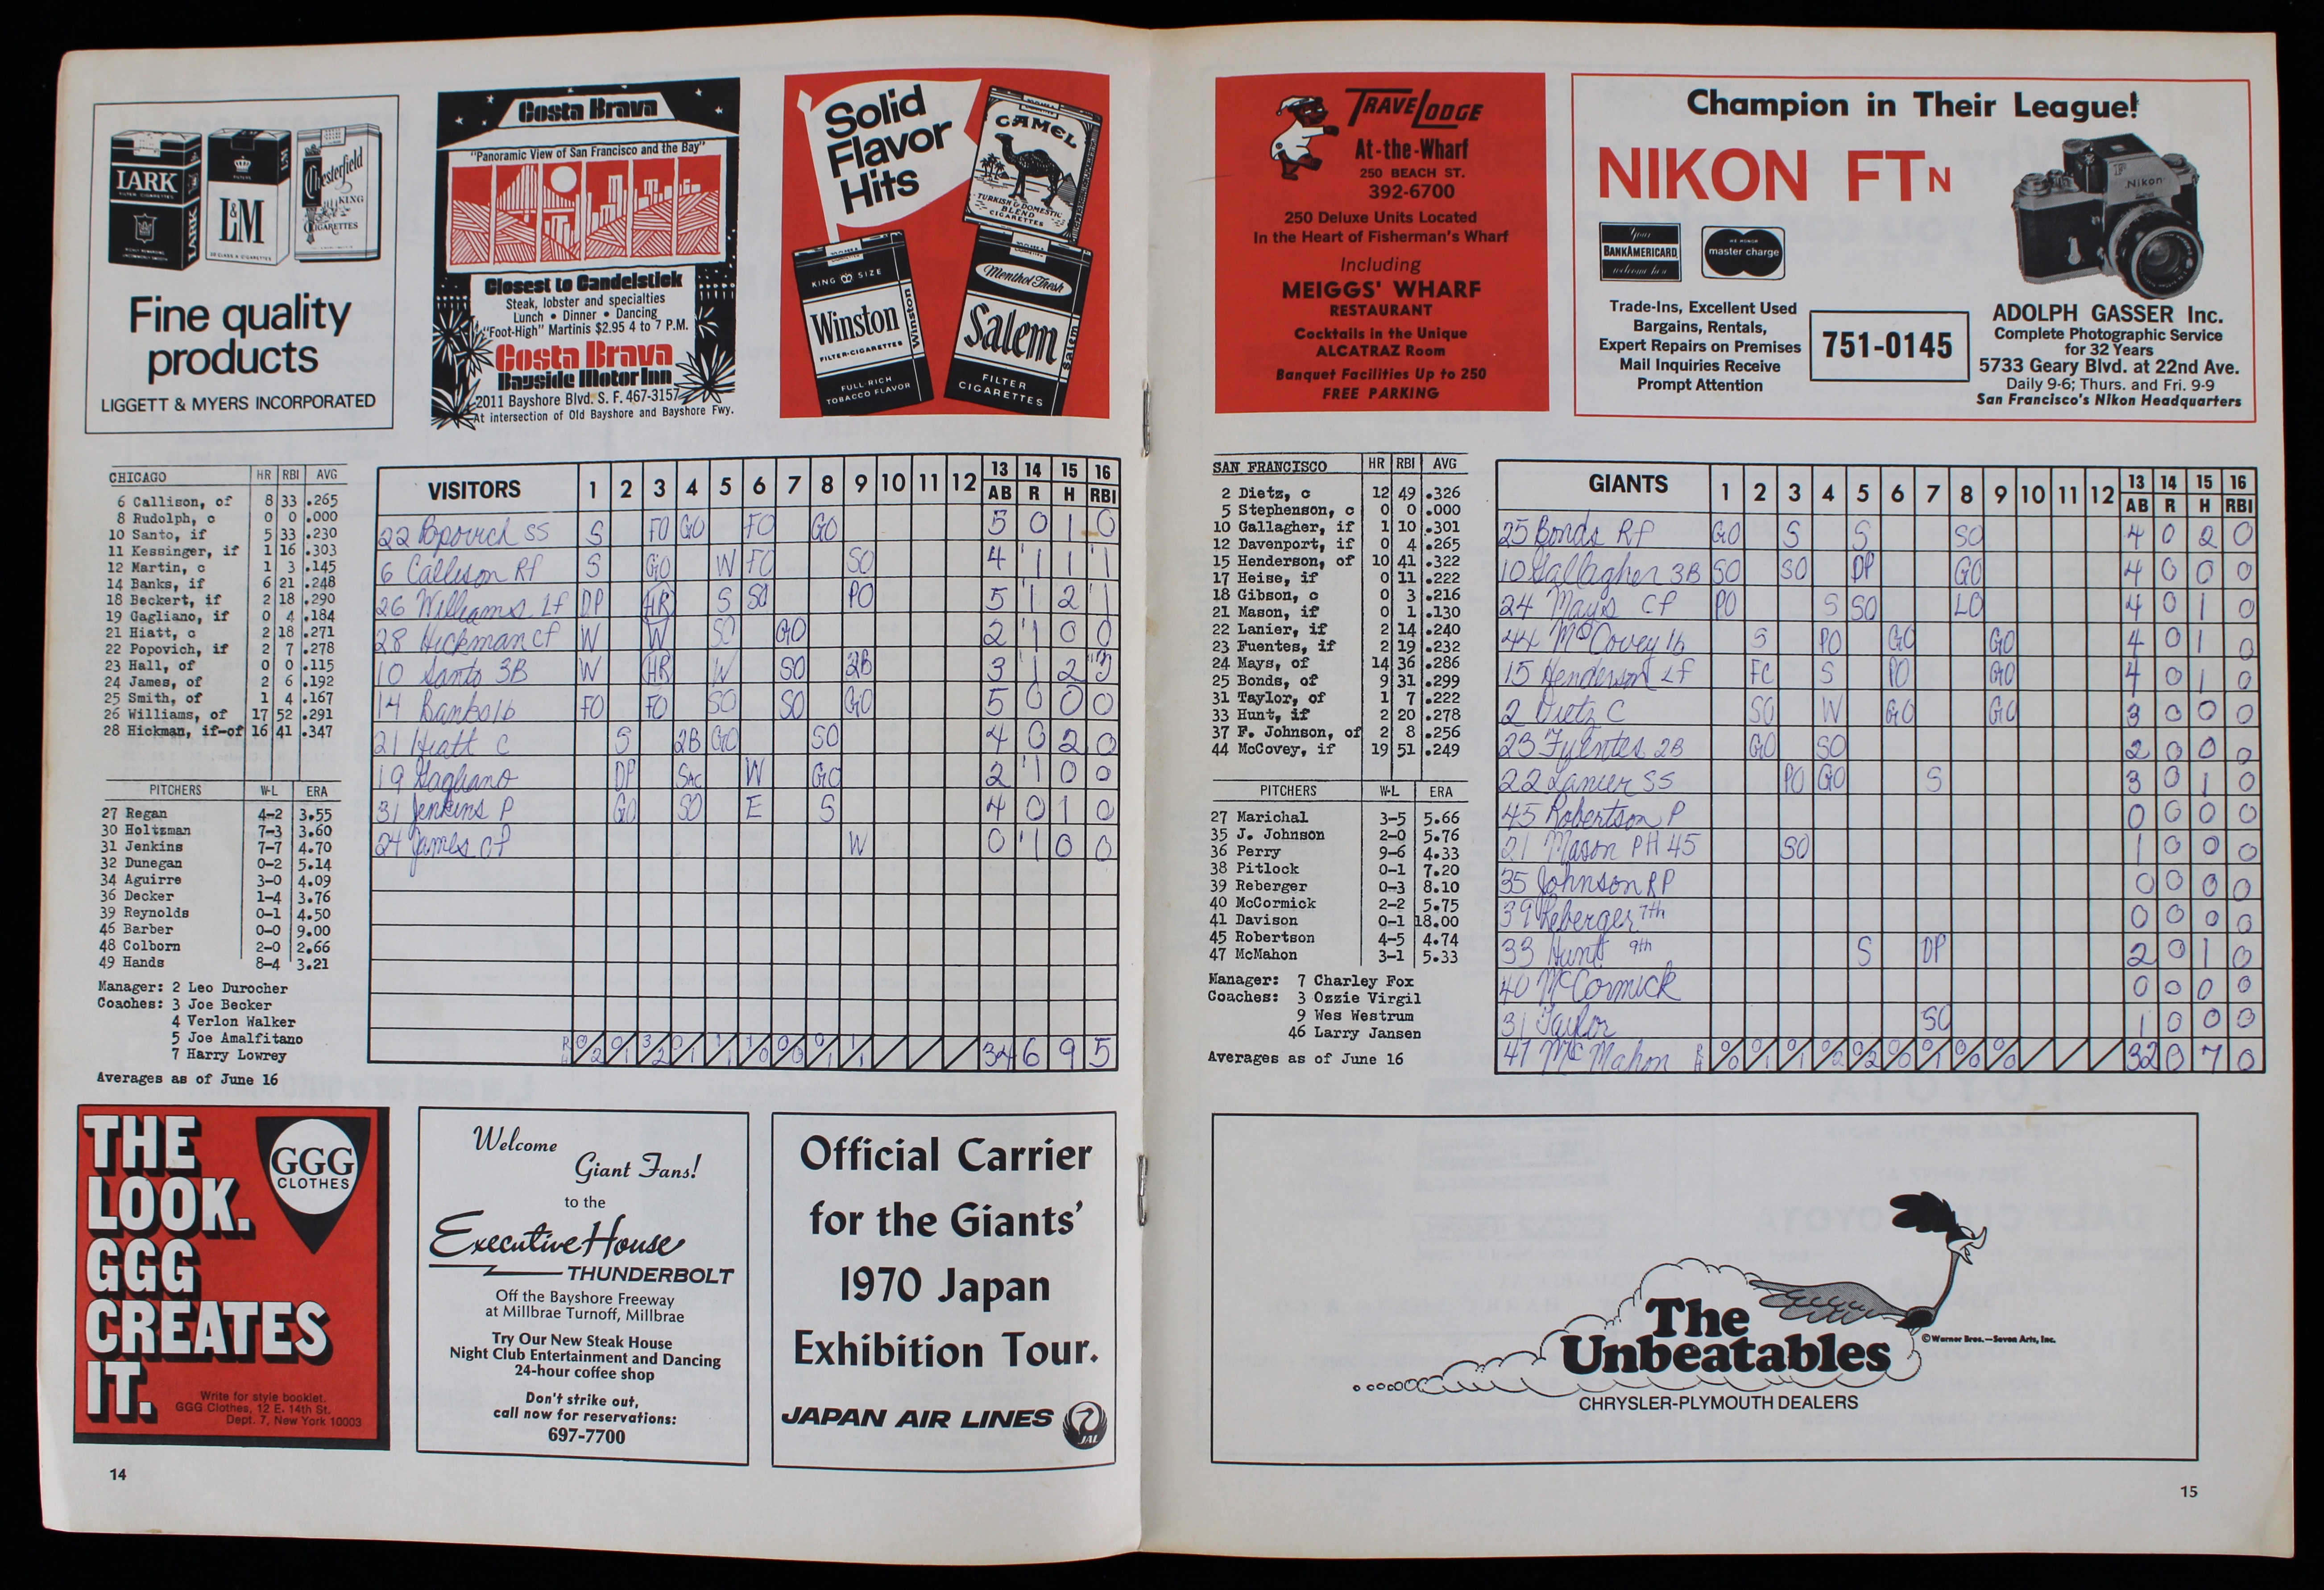 LARK
FILTER CIGARETTES
LARK
L&M
LM
Chesterfield
KING
CIGARETTES
Fine quality
products
LIGGETT & MYERS INCORPORATED
Costa Brava
"Panoramic View of San Francisco and the Bay"
Closest to Candelstick
Steak, lobster and specialties
Lunch • Dinner • Dancing
"Foot-High" Martinis $2.95 4 to 7 P.M.
Costa Brava
Bayside Motor Inn
2011 Bayshore Blvd. S. F. 467-3157
At intersection of Old Bayshore and Bayshore Fwy.
Solid
Flavor
Hits
CAMEL
TURKISH & DOMESTIC
BLEND
CIGARETTES
KING SIZE
Winston
Winston
FILTER-CIGARETTES
FULL-RICH
TOBACCO FLAVOR
Menthol Fresh
Salem
Salem
FILTER
CIGARETTES
CHICAGO HR RBI AVG
6 Callison, of 8 33 .265
8 Rudolph, c 0 0 .000
10 Santo, if 5 33 .230
11 Kessinger, if 1 16 .303
12 Martin, c 1 3 .145
14 Banks, if 6 21 .248
18 Beckert, if 2 18 .290
19 Gagliano, if 0 4 .184
21 Hiatt, c 2 18 .271
22 Popovich, if 2 7 .278
23 Hall, of 0 0 .115
24 James, of 2 6 .192
25 Smith, of 1 4 .167
26 Williams, of 17 52 .291
28 Hickman, if-of 16 41 .347
PITCHERS W-L ERA
27 Regan 4-2 3.55
30 Holtzman 7-3 3.60
31 Jenkins 7-7 4.70
32 Dunegan 0-2 5.14
34 Aguirre 3-0 4.09
36 Decker 1-4 3.76
39 Reynolds 0-1 4.50
46 Barber 0-0 9.00
48 Colborn 2-0 2.66
49 Hands 8-4 3.21
Manager: 2 Leo Durocher
Coaches: 3 Joe Becker
4 Verlon Walker
5 Joe Amalfitano
7 Harry Lowrey
Averages as of June 16
VISITORS 1 2 3 4 5 6 7 8 9 10 11 12 13 AB 14 R 15 H 16 RBI
22 Popovich SS S FO GO FO GO 5 0 1 0
6 Callison RF S GO W FC SO 4 1 1 1
26 Williams LF DP HR S SO PO 5 1 2 1
28 Hickman CF W W SO GO 2 1 0 0
10 Santo 3B W HR W SO 2B 3 1 2 3
14 Banks 1b FO FO SO SO GO 5 0 0 0
21 Hiatt C S 2B GO SO 4 0 2 0
19 Gagliano DP SAC W GO 2 1 0 0
31 Jenkins P GO SO E S 4 0 1 0
24 James CF W 0 1 0 0
R H 0/2 0/1 3/2 0/1 1/1 1/0 0/0 0/1 1/1 34 6 9 5
THE
LOOK.
GGG
CREATES
IT.
GGG
CLOTHES
Write for style booklet.
GGG Clothes, 12 E. 14th St.
Dept. 7, New York 10003
Welcome
Giant Fans!
to the
Executive House
THUNDERBOLT
Off the Bayshore Freeway
at Millbrae Turnoff, Millbrae
Try Our New Steak House
Night Club Entertainment and Dancing
24-hour coffee shop
Don't strike out,
call now for reservations:
697-7700
Official Carrier
for the Giants'
1970 Japan
Exhibition Tour.
JAPAN AIR LINES
JAL
14
TRAVELODGE
At-the-Wharf
250 BEACH ST.
392-6700
250 Deluxe Units Located
In the Heart of Fisherman's Wharf
Including
MEIGGS' WHARF
RESTAURANT
Cocktails in the Unique
ALCATRAZ Room
Banquet Facilities Up to 250
FREE PARKING
Champion in Their League!
NIKON FTN
Nikon
Your
BANKAMERICARD
welcome here
WE HONOR
master charge
Trade-Ins, Excellent Used
Bargains, Rentals,
Expert Repairs on Premises
Mail Inquiries Receive
Prompt Attention
751-0145
ADOLPH GASSER Inc.
Complete Photographic Service
for 32 Years
5733 Geary Blvd. at 22nd Ave.
Daily 9-6; Thurs. and Fri. 9-9
San Francisco's Nikon Headquarters
SAN FRANCISCO HR RBI AVG
2 Dietz, c 12 49 .326
5 Stephenson, c 0 0 .000
10 Gallagher, if 1 10 .301
12 Davenport, if 0 4 .265
15 Henderson, of 10 41 .322
17 Heise, if 0 11 .222
18 Gibson, c 0 3 .216
21 Mason, if 0 1 .130
22 Lanier, if 2 14 .240
23 Fuentes, if 2 19 .232
24 Mays, of 14 36 .286
25 Bonds, of 9 31 .299
31 Taylor, of 1 7 .222
33 Hunt, if 2 20 .278
37 F. Johnson, of 2 8 .256
44 McCovey, if 19 51 .249
PITCHERS W-L ERA
27 Marichal 3-5 5.66
35 J. Johnson 2-0 5.76
36 Perry 9-6 4.33
38 Pitlock 0-1 7.20
39 Reberger 0-3 8.10
40 McCormick 2-2 5.75
41 Davison 0-1 18.00
45 Robertson 4-5 4.74
47 McMahon 3-1 5.33
Manager: 7 Charley Fox
Coaches: 3 Ozzie Virgil
9 Wes Westrum
46 Larry Jansen
Averages as of June 16
GIANTS 1 2 3 4 5 6 7 8 9 10 11 12 13 AB 14 R 15 H 16 RBI
25 Bonds RF GO S S SO 4 0 2 0
10 Gallagher 3B SO SO DP GO 4 0 0 0
24 Mays CF PO S SO LO 4 0 1 0
44 McCovey 1b S PO GO GO 4 0 1 0
15 Henderson LF FC S PO GO 4 0 1 0
2 Dietz C SO W GO GO 3 0 0 0
23 Fuentes 2B GO SO 2 0 0 0
22 Lanier SS PO GO S 3 0 1 0
45 Robertson P 0 0 0 0
21 Mason PH 45 SO 1 0 0 0
35 Johnson RP 0 0 0 0
39 Reberger 7th 0 0 0 0
33 Hunt 9th S DP 2 0 1 0
40 McCormick 0 0 0 0
31 Taylor SO 1 0 0 0
47 McMahon R H 0/0 0/1 0/1 0/2 0/2 0/0 0/1 0/0 0/0 32 0 7 0
The
Unbeatables
© Warner Bros.—Seven Arts, Inc.
CHRYSLER-PLYMOUTH DEALERS
15